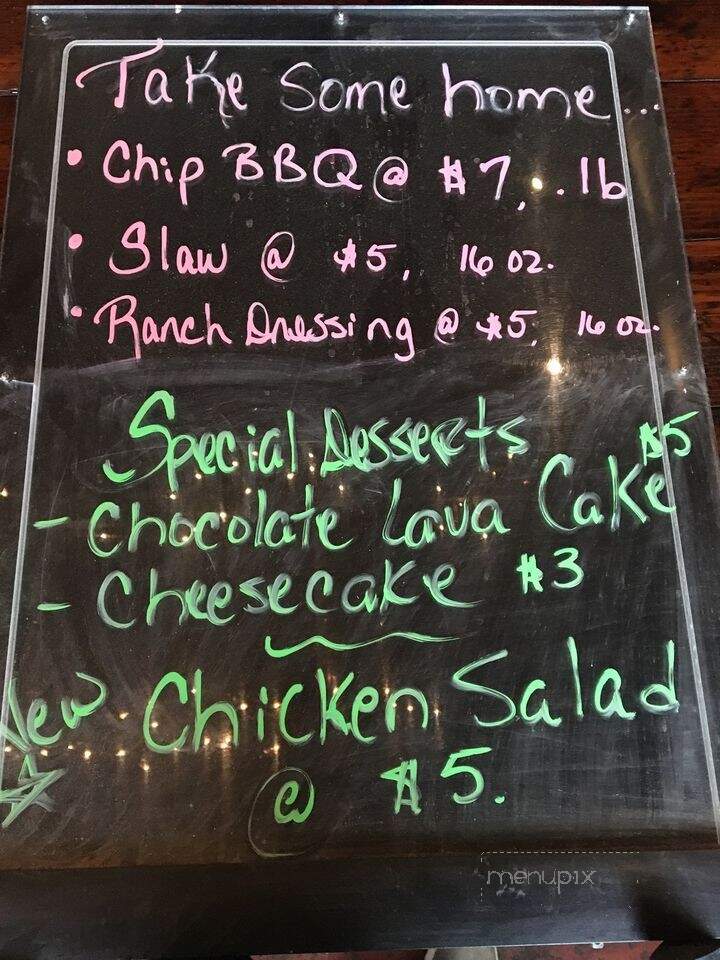 Take Some home...
• Chip BBQ @ $7, . lb
• Slaw @ $5, 16 oz.
• Ranch Dressing @ $5, 16 oz.
Special Desserts
- Chocolate Lava Cake $5
- Cheesecake $3
New Chicken Salad
@ $5.
menupix